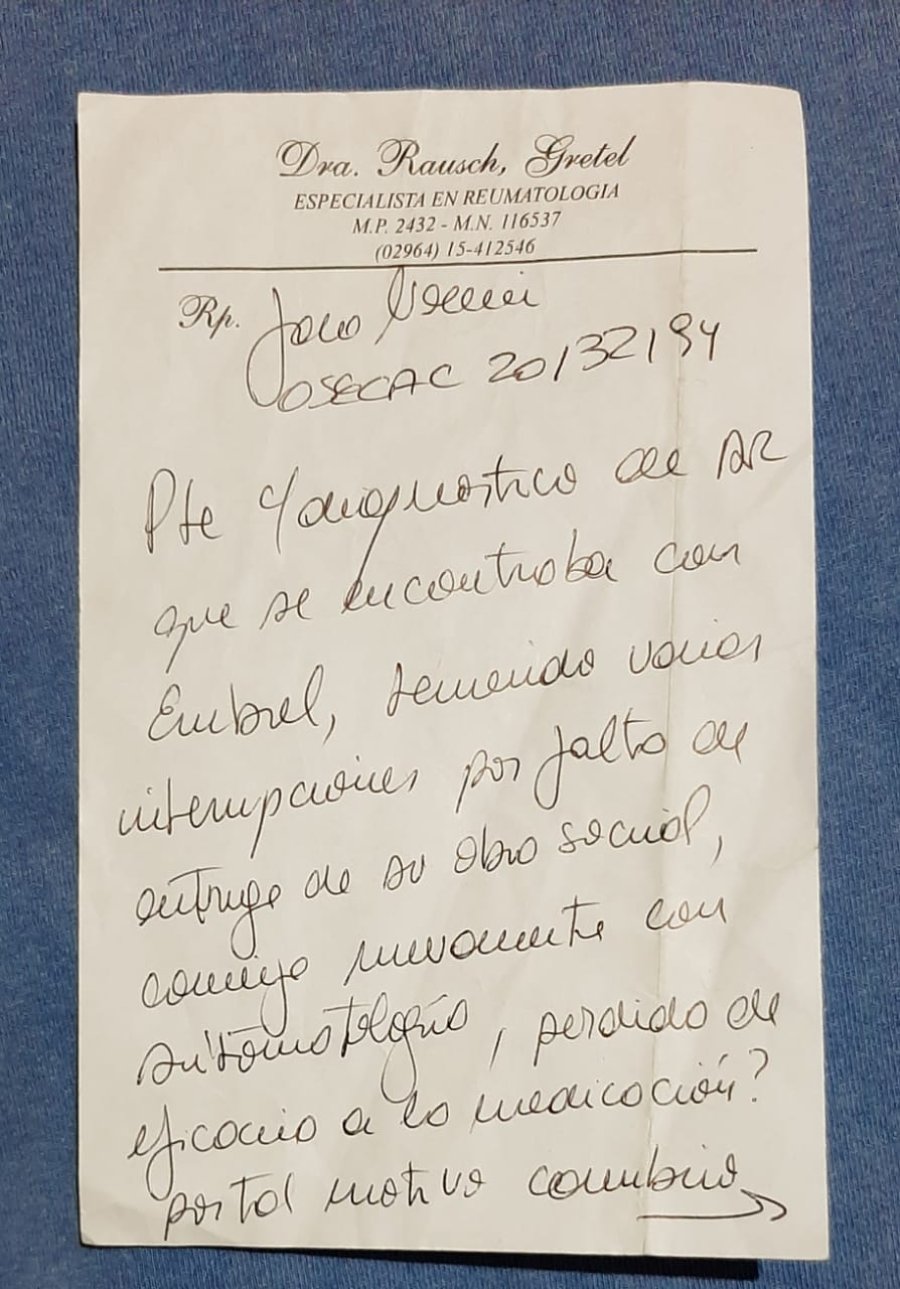 Dra. Rausch, Gretel
ESPECIALISTA EN REUMATOLOGIA
M.P. 2432 - M.N. 116537
(02964) 15-412546
Rp.
OSECAC 20132194
Pte c/diagnostico de AR
que se encontraba con
Enbrel, teniendo varias
interrupciones por falta de
entrega de su obra social,
comienza nuevamente con
sintomatología, perdida de
eficacia a la medicación?
por tal motivo cambio